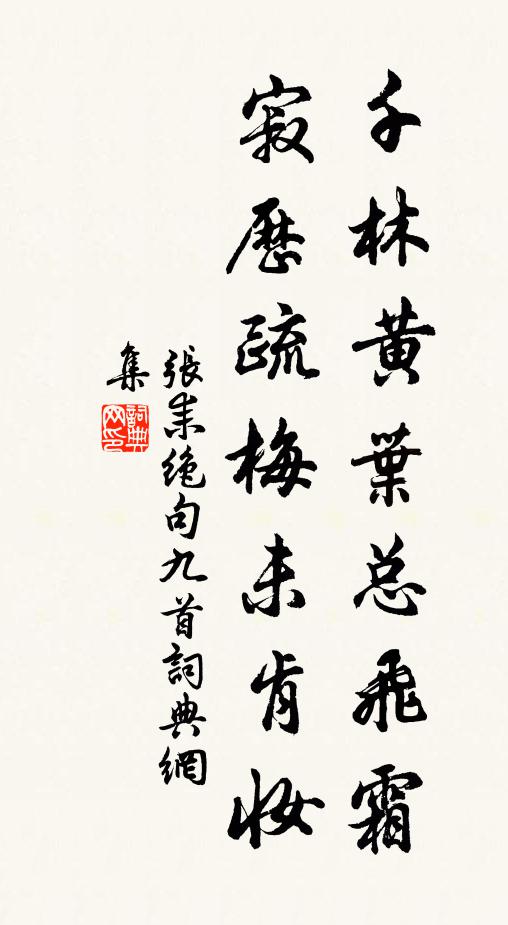 千林黄葉总飛霜
寂歷疏梅未肯妝
張耒絶句九首詞典網
集
詞典网印